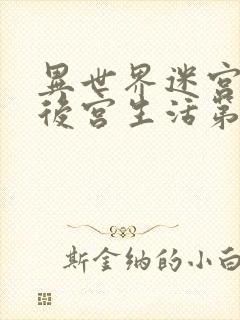 異世界迷宮
後宮生活第
斯金纳的小白